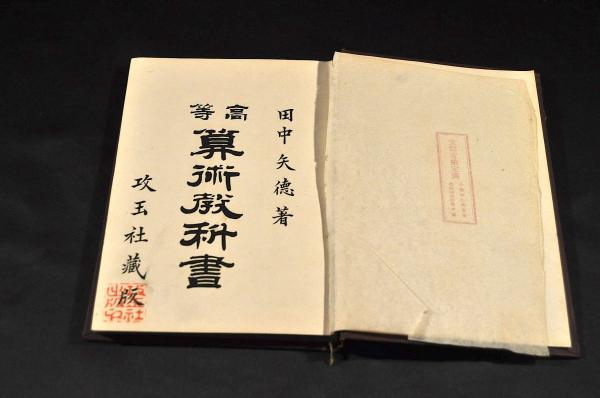 田中矢德著
高等
算術教科書
攻玉社藏版